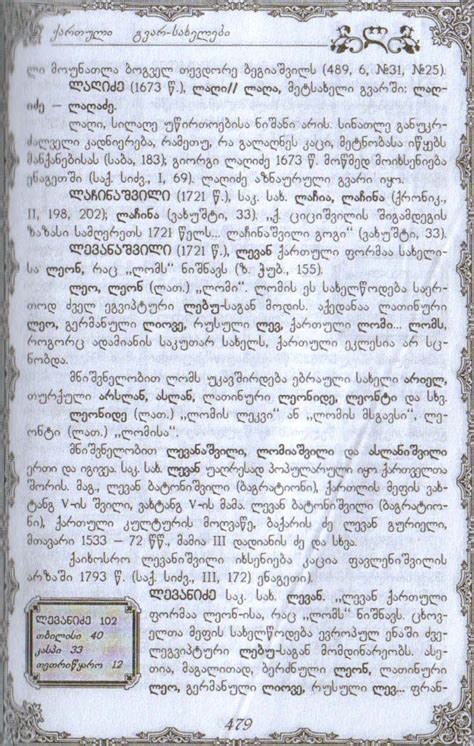 ქართული გვარ-სახელები
ლი მოუნათლა ბოგველ თევდორე ბეგიაშვილს (489, 6, №31, №25).
ლაღიძე (1673 წ.), ლაღი// ლაღა, მეტსახელი გვარში: ლაღ-
იძე – ლაღაძე.
ლაღი, სილაღე უწირთოებისა ნიშანი არის. სინათლე განუკრ-
ძალველი კადნიერება, რამეთუ, რა გალაღნეს კაცი, მეტნობასა იწყებს
მანქანებისას (საბა, 183); გიორგი ლაღიძე 1673 წ. მოწმედ მოიხსენიება
ენაგეთში (საქ. სიძვ., I, 69). ლაღიძე აზნაურული გვარი იყო.
ლაჩინაშვილი (1721 წ.), საკ. სახ. ლაჩია, ლაჩინა (ქრონიკ.,
II, 198, 202); ლაჩინა (ვახუშტი, 33). „ქ. ციციშვილის შიგამდეგის
ზაზასი სამღერეთს 1721 წელს... ლაჩინაშვილი გოგი“ (ვახუშტი, 33).
ლევანაშვილი (1721 წ.), ლევან ქართული ფორმაა სახელი-
სა ლეონ, რაც „ლომს“ ნიშნავს (ზ. ჭუბ., 155).
ლეო, ლეონ (ლათ.) „ლომი“. ლომის ეს სახელწოდება საერ-
თოდ ძველ ეგვიპტური ლებუ-საგან მოდის. აქედანაა ლათინური
ლეო, გერმანული ლიოვე, რუსული ლევ, ქართული ლომი... ლომს,
როგორც ადამიანის საკუთარ სახელს, ქართული ეკლესია არ სც-
ნობდა.
მნიშვნელობით ლომს უკავშირდება ებრაული სახელი არიელ,
თურქული არსლან, ასლან, ლათინური ლეონიდე, ლეონტი და სხვ.
ლეონიდე (ლათ.) „ლომის ლეკვი“ ან „ლომის მსგავსი“, ლე-
ონტი (ლათ.) „ლომისა“.
მნიშვნელობით ლევანაშვილი, ლომიაშვილი და ასლანიშვილი
ერთი და იგივეა. საკ. სახ. ლევან უაღრესად პოპულარული იყო ქართველთა
შორის. მაგ., ლევან ბატონიშვილი (ბაგრატიონი), ქართლის მეფის ვახ-
ტანგ V-ის შვილი, ვახტანგ V-ის მამა. ლევან ბატონიშვილი (ბაგრატიო-
ნი), ქართული კულტურის მოღვაწე, ბაქარის ძე ლევან გურიელი,
მთავარი 1533 – 72 წწ., მამია III დადიანის ძე და სხვა.
ქაიხოსრო ლევანიშვილი იხსენიება ჯაცია ფავლენიშვილის
არზაში 1793 წ. (საქ. სიძვ., III, 172) ენაგეთი).
ლევანიძე საკ. სახ. ლევან. „ლევან ქართული
ფორმაა ლეონ-ისა, რაც „ლომს“ ნიშნავს. ცხოვ-
ელთა მეფის სახელწოდება ევროპულ ენაში ძვე-
ლეგვიპტური ლებუ-საგან მომდინარეობს. ასე-
თია, მაგალითად, ბერძნული ლეონ, ლათინური
ლეო, გერმანული ლიოვე, რუსული ლევ... ფრან-
ლევანიძე 102
თბილისი 40
კასპი 33
თეთრიწყარო 12
479